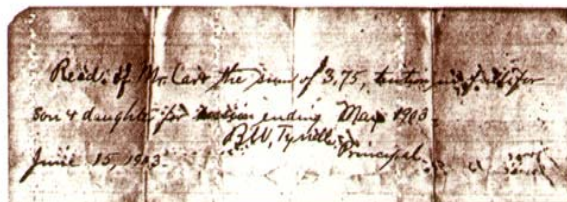 Recd. of Mr. Carr the sum of 3.75, tuition for
son & daughter for session ending May 1903.
B.W. Tyrille, Principal.
June 15, 1903.